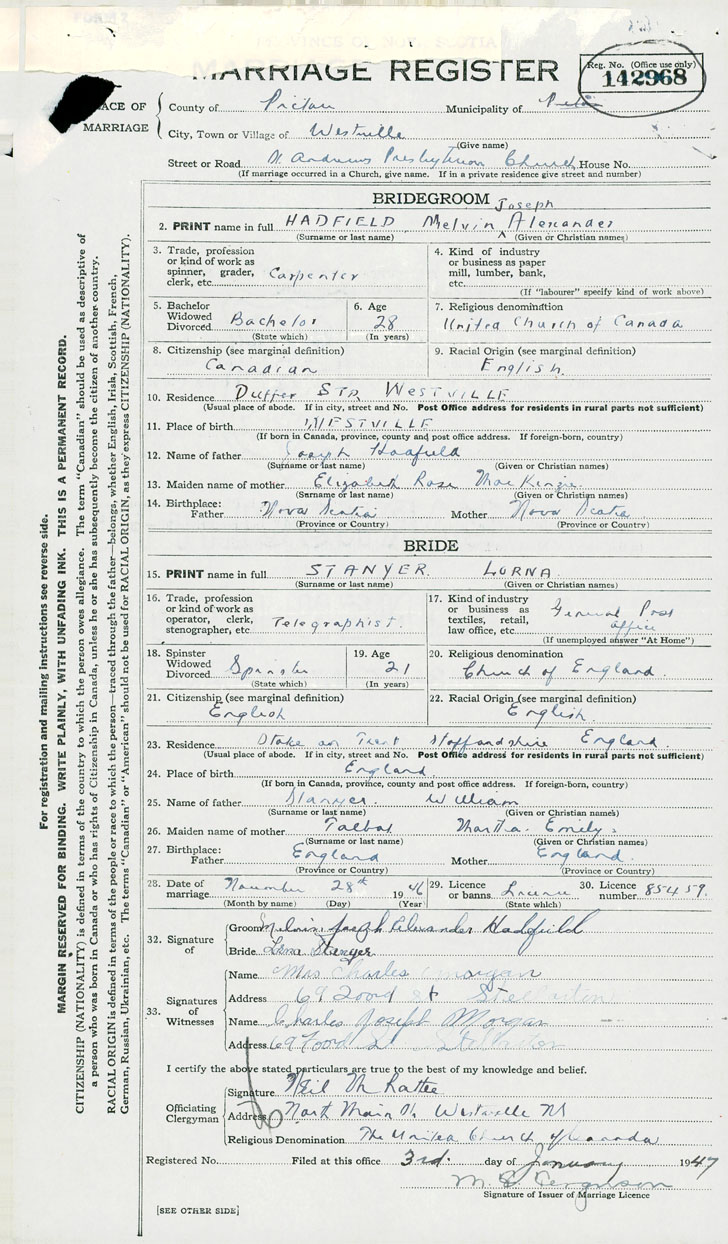 FORM 7
PROVINCE OF NOVA SCOTIA
MARRIAGE REGISTER
Reg. No. (Office use only)
142968
PLACE OF MARRIAGE
County of Pictou Municipality of
City, Town or Village of Westville
(Give name)
Street or Road St. Andrews Presbyterian Church House No.
(If marriage occurred in a Church, give name. If in a private residence give street and number)
BRIDEGROOM
2. PRINT name in full HADFIELD Melvin Joseph Alexander
(Surname or last name) (Given or Christian names)
3. Trade, profession or kind of work as spinner, grader, clerk, etc. Carpenter
4. Kind of industry or business as paper mill, lumber, bank, etc.
(If "labourer" specify kind of work above)
5. Bachelor Widowed Divorced Bachelor
(State which)
6. Age 28
(In years)
7. Religious denomination
United Church of Canada
8. Citizenship (see marginal definition)
Canadian
9. Racial Origin (see marginal definition)
English.
10. Residence Duffer Str WESTVILLE
(Usual place of abode. If in city, street and No. Post Office address for residents in rural parts not sufficient)
11. Place of birth WESTVILLE
(If born in Canada, province, county and post office address. If foreign-born, country)
12. Name of father Joseph Hadfield
(Surname or last name) (Given or Christian names)
13. Maiden name of mother Elizabeth Rose MacKenzie
(Surname or last name) (Given or Christian names)
14. Birthplace: Father Nova Scotia Mother Nova Scotia
(Province or Country) (Province or Country)
BRIDE
15. PRINT name in full STANYER. LORNA.
(Surname or last name) (Given or Christian names)
16. Trade, profession or kind of work as operator, clerk, stenographer, etc. Telegraphist.
17. Kind of industry or business as textiles, retail, law office, etc. General Post office
(If unemployed answer "At Home")
18. Spinster Widowed Divorced Spinster
(State which)
19. Age 21
(In years)
20. Religious denomination
Church of England.
21. Citizenship (see marginal definition)
English
22. Racial Origin (see marginal definition)
English.
23. Residence Stoke on Trent Staffordshire England.
(Usual place of abode. If in city, street and No. Post Office address for residents in rural parts not sufficient)
24. Place of birth England.
(If born in Canada, province, county and post office address. If foreign-born, country)
25. Name of father Stanyer. William
(Surname or last name) (Given or Christian names)
26. Maiden name of mother Talbot Martha Emily.
(Surname or last name) (Given or Christian names)
27. Birthplace: Father England Mother England.
(Province or Country) (Province or Country)
28. Date of marriage November 28th 1946
(Month by name) (Day) (Year)
29. Licence or banns License
(State which)
30. Licence number 85459.
32. Signature of
Groom Melvin Joseph Alexander Hadfield
Bride Lorna Stanyer
33. Signatures of Witnesses
Name Mrs Charles Morgan
Address 69 Foord St Stellarton
Name Charles Joseph Morgan
Address 69 Foord St Stellarton
I certify the above stated particulars are true to the best of my knowledge and belief.
Officiating Clergyman
Signature Neil McRattee
Address North Main St. Westville NS
Religious Denomination The United Church of Canada
Registered No. Filed at this office 3rd. day of January 1947
M. B. Ferguson
Signature of Issuer of Marriage Licence
[SEE OTHER SIDE]
For registration and mailing instructions see reverse side.
MARGIN RESERVED FOR BINDING. WRITE PLAINLY, WITH UNFADING INK. THIS IS A PERMANENT RECORD.
CITIZENSHIP (NATIONALITY) is defined in terms of the country to which the person owes allegiance. The term "Canadian" should be used as descriptive of
a person who was born in Canada or who has rights of Citizenship in Canada, unless he or she has subsequently become the citizen of another country.
RACIAL ORIGIN is defined in terms of the people or race to which the person—traced through the father—belongs, whether English, Irish, Scottish, French,
German, Russian, Ukrainian, etc. The terms "Canadian" or "American" should not be used for RACIAL ORIGIN, as they express CITIZENSHIP (NATIONALITY).